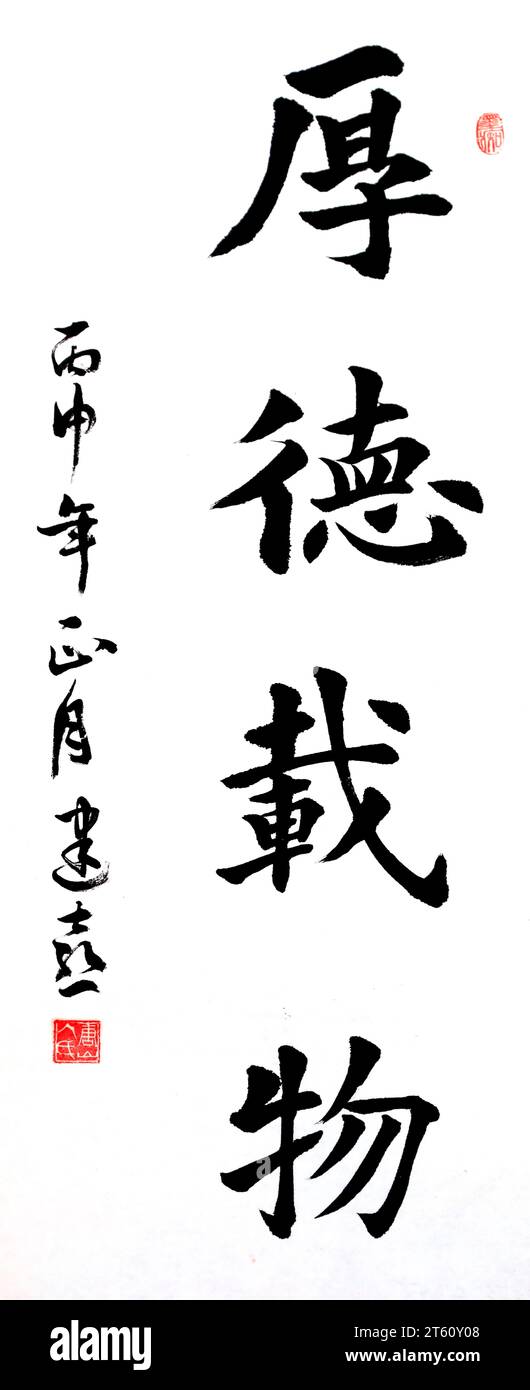 厚徳載物
丙申年正月建
唐山人氏
alamy
Image ID: 2T60Y08
www.alamy.com